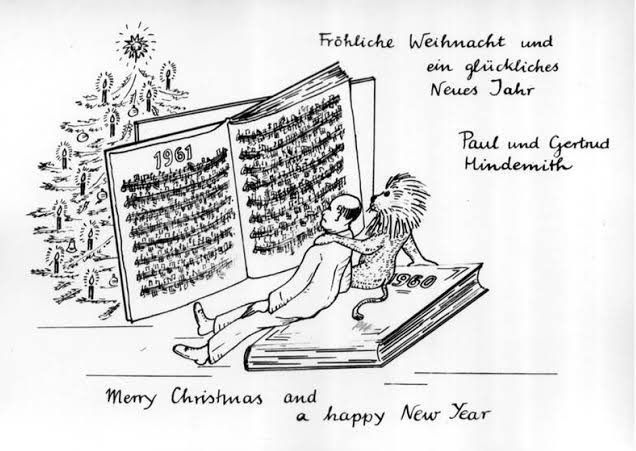 Fröhliche Weihnacht und
ein glückliches
Neues Jahr
Paul und Gertrud
Hindemith
1961
1960
Merry Christmas and
a happy New Year